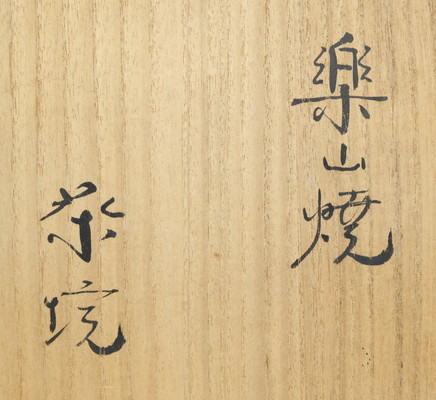 樂山焼
茶垸